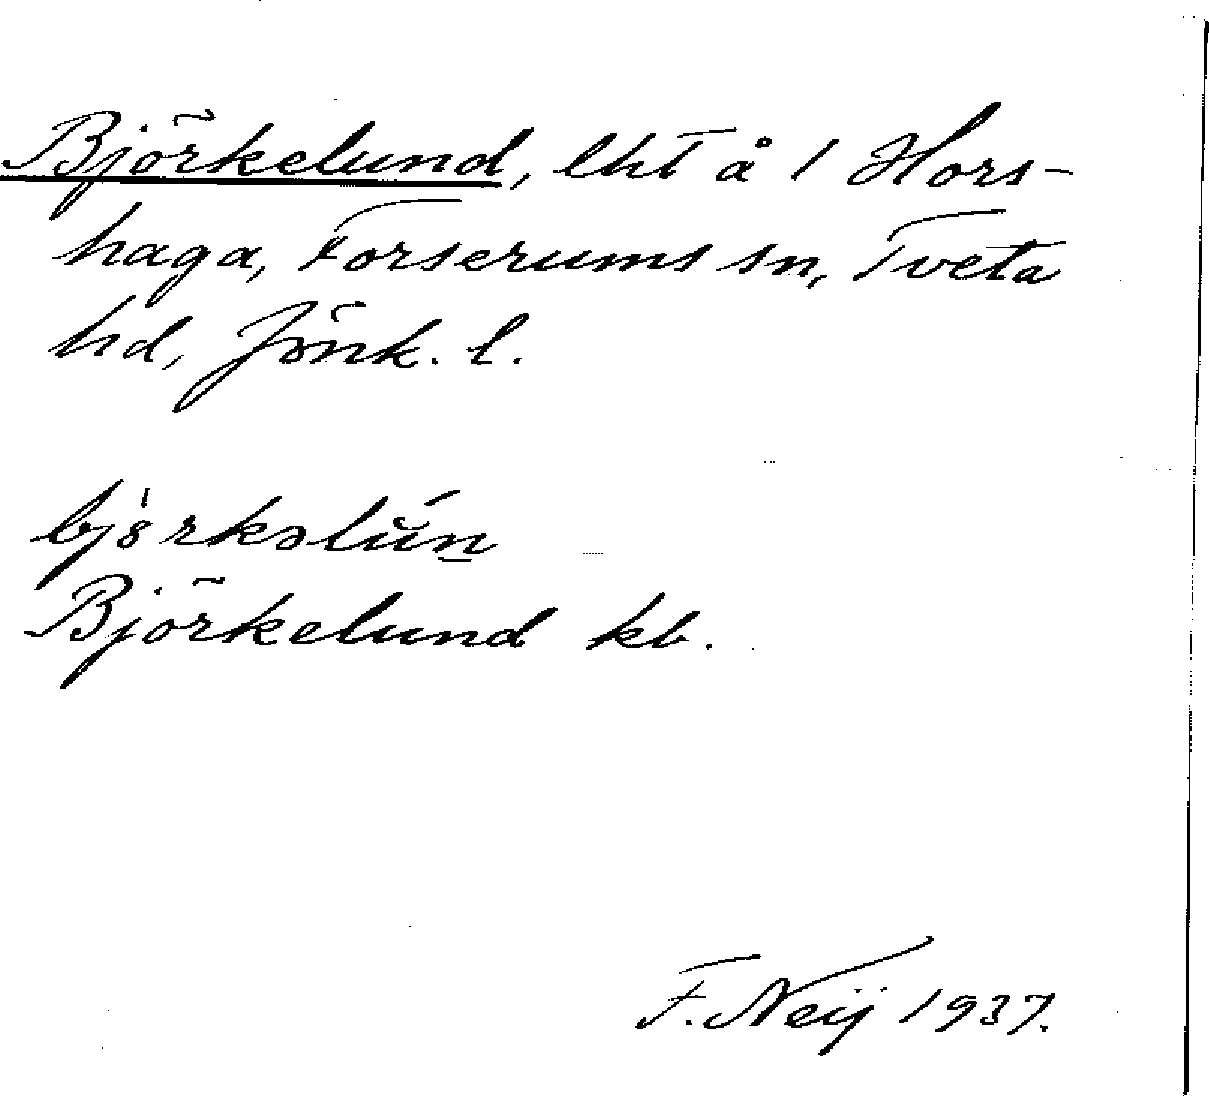 Björkelund, lht å 1 Hors-
haga, Forserums sn, Tveta
hd, Jönk. l.
Björkelund kb.
F. Neij 1937.